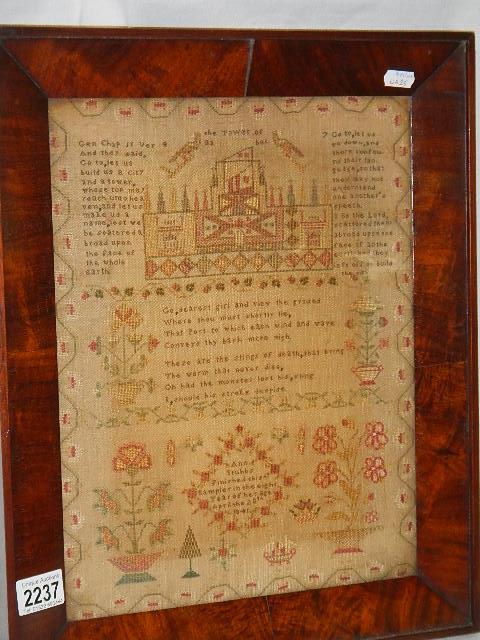 the Tower of
Ba bel
Gen Chap 11 Ver 4
And they said,
Go to, let us
build us a City
and a tower,
whose top may
reach unto hea
ven, and let us
make us a
name, lest we
be scattered a
broad upon
the face of
the whole
earth
7 Go to, let us
go down, and
there confou
nd their lan
guage, so that
they may not
understand
one another's
speech
8 So the Lord,
scattered them
abroad upon the
face of all the
earth and they
left off to build
the city
Go, dearest girl and view the ground
Where thou must shortly lie,
That Port to which each wind and wave
Conveys thy bark more nigh
These are the stings of death, that bring
The worm that never dies,
Oh had the monster lost his sting
I should his stroke despise
Ann
Stubbs
Finished this
Sampler in the eight
Year of her Age
April the 26th
1841
2237